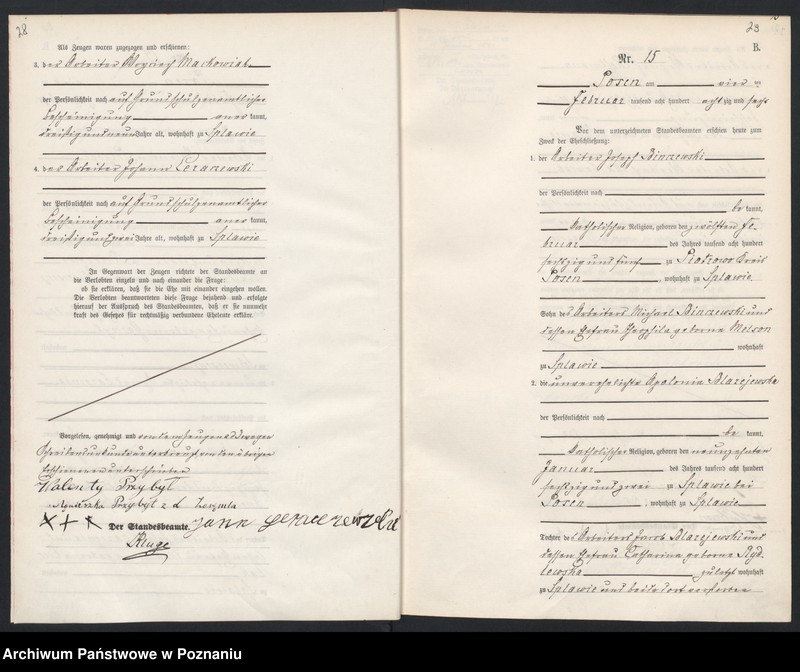 28
Als Zeugen waren zugezogen und erschienen:
3. der Arbeiter Woyciech Maćkowiak
der Persönlichkeit nach auf Grund schulzenamtlicher
Bescheinigung aner kannt,
dreißigundneun Jahre alt, wohnhaft zu Splawie
4. der Arbeiter Johann
der Persönlichkeit nach auf Grund schulzenamtlicher
Bescheinigung aner kannt,
dreißigundzwei Jahre alt, wohnhaft zu Splawie
In Gegenwart der Zeugen richtete der Standesbeamte an
die Verlobten einzeln und nach einander die Frage:
ob sie erklären, daß sie die Ehe mit einander eingehen wollen.
Die Verlobten beantworteten diese Frage bejahend und erfolgte
hierauf der Ausspruch des Standesbeamten, daß er sie nunmehr
kraft des Gesetzes für rechtmäßig verbundene Eheleute erkläre.
Vorgelesen, genehmigt und von dem Zeugen
Schreibens unkundig unterkreuzt von den übrigen
Erschienenen unterschrieben
Walenty Przybył
Agnieszka Przybył z d
+++
Der Standesbeamte.
Kluge
29
B.
Nr. 15
Posen am vier ten
Februar tausend acht hundert acht zig und sechs
Vor dem unterzeichneten Standesbeamten erschien heute zum
Zweck der Eheschließung:
1. der Arbeiter Joseph Binczewski
der Persönlichkeit nach
be kannt,
katholischer Religion, geboren den zwölften Fe-
bruar des Jahres tausend acht hundert
sechzig und fünf zu Piotrowo Kreis
Posen, wohnhaft zu Splawie
Sohn des Arbeiters Michael Binczewski und
dessen Ehefrau Theophila geborne
wohnhaft
zu Splawie
2. die unverehelichte Apolonia Blazejewska
der Persönlichkeit nach
be kannt,
katholischer Religion, geboren den neunzehnten
Januar des Jahres tausend acht hundert
sechzig und zwei zu Splawie bei
Posen, wohnhaft zu Splawie
Tochter des Arbeiters Jacob Blazejewski und
dessen Ehefrau Catharina geborne Ryd-
lewska zuletzt wohnhaft
zu Splawie und beide dort verstorben
Archiwum Państwowe w Poznaniu